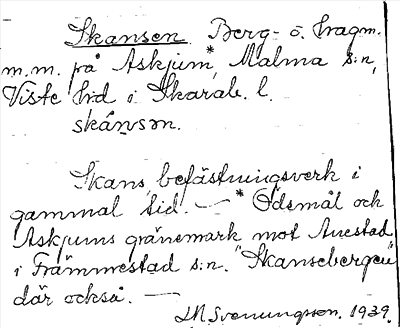 Skansen. Berg- o. hragm.
m.m. på Askjum*, Malma s:n,
Viste hrd i Skarab. l.
skánsən.
Skans, befästningsverk i
gammal tid. — * Ödsmål och
Askjums gränsmark mot Anestad
i Främmestad s:n. "Skansebergen"
där också. —
Svenungsson. 1939.